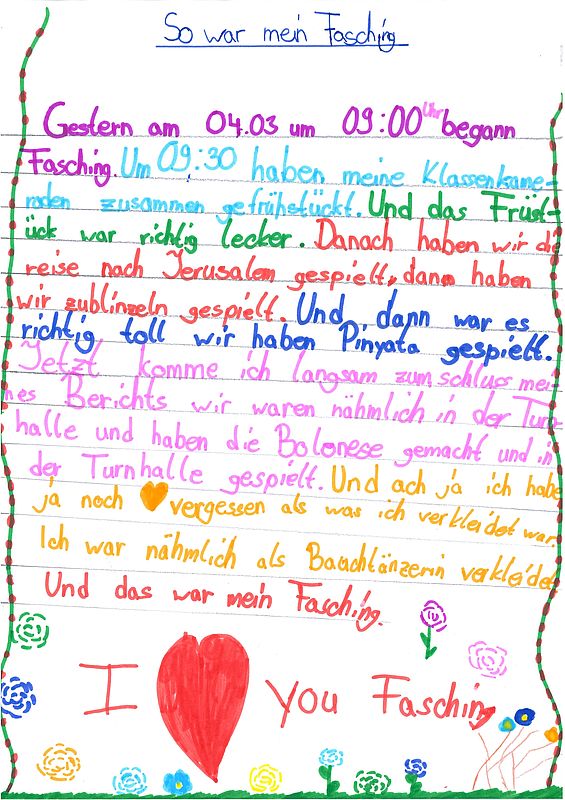 So war mein Fasching
Gestern am 04.03 um 09:00 Uhr begann
Fasching. Um 09:30 haben meine Klassenkame-
raden zusammen gefrühstückt. Und das Früst-
ück war richtig lecker. Danach haben wir die
reise nach Jerusalem gespielt, dann haben
wir zublinzeln gespielt. Und dann war es
richtig toll wir haben Pinyata gespielt.
Jetzt komme ich langsam zum schluss mei-
nes Berichts wir waren nähmlich in der Turn-
halle und haben die Bolonese gemacht und in
der Turnhalle gespielt. Und ach ja ich habe
ja noch vergessen als was ich verkleidet war.
Ich war nähmlich als Bauchtänzerin verkleidet
Und das war mein Fasching.
I you Fasching